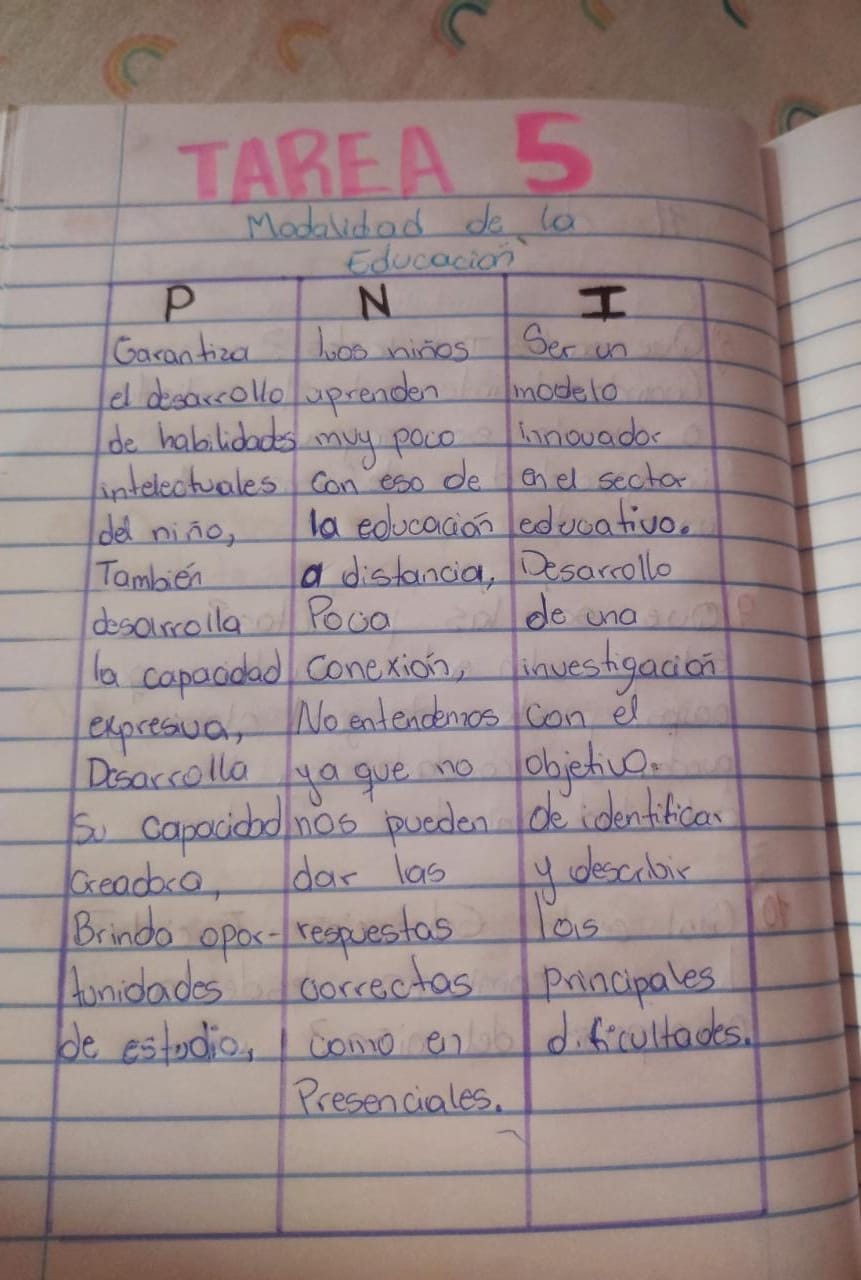 TAREA 5
Modalidad de la
Educación
P
Garantiza
el desarrollo
de habilidades
intelectuales
del niño,
También
desarrolla
la capacidad
expresiva,
Desarrolla
Su capacidad
Creadora,
Brinda opor-
tunidades
de estudio,
N
Los niños
aprenden
muy poco
Con eso de
la educación
a distancia,
Poca
conexión,
No entendemos
ya que no
nos pueden
dar las
respuestas
correctas
como en
Presenciales.
I
Ser un
modelo
innovador
en el sector
educativo.
Desarrollo
de una
investigación
con el
objetivo.
de identificar
y describir
las
Principales
dificultades.